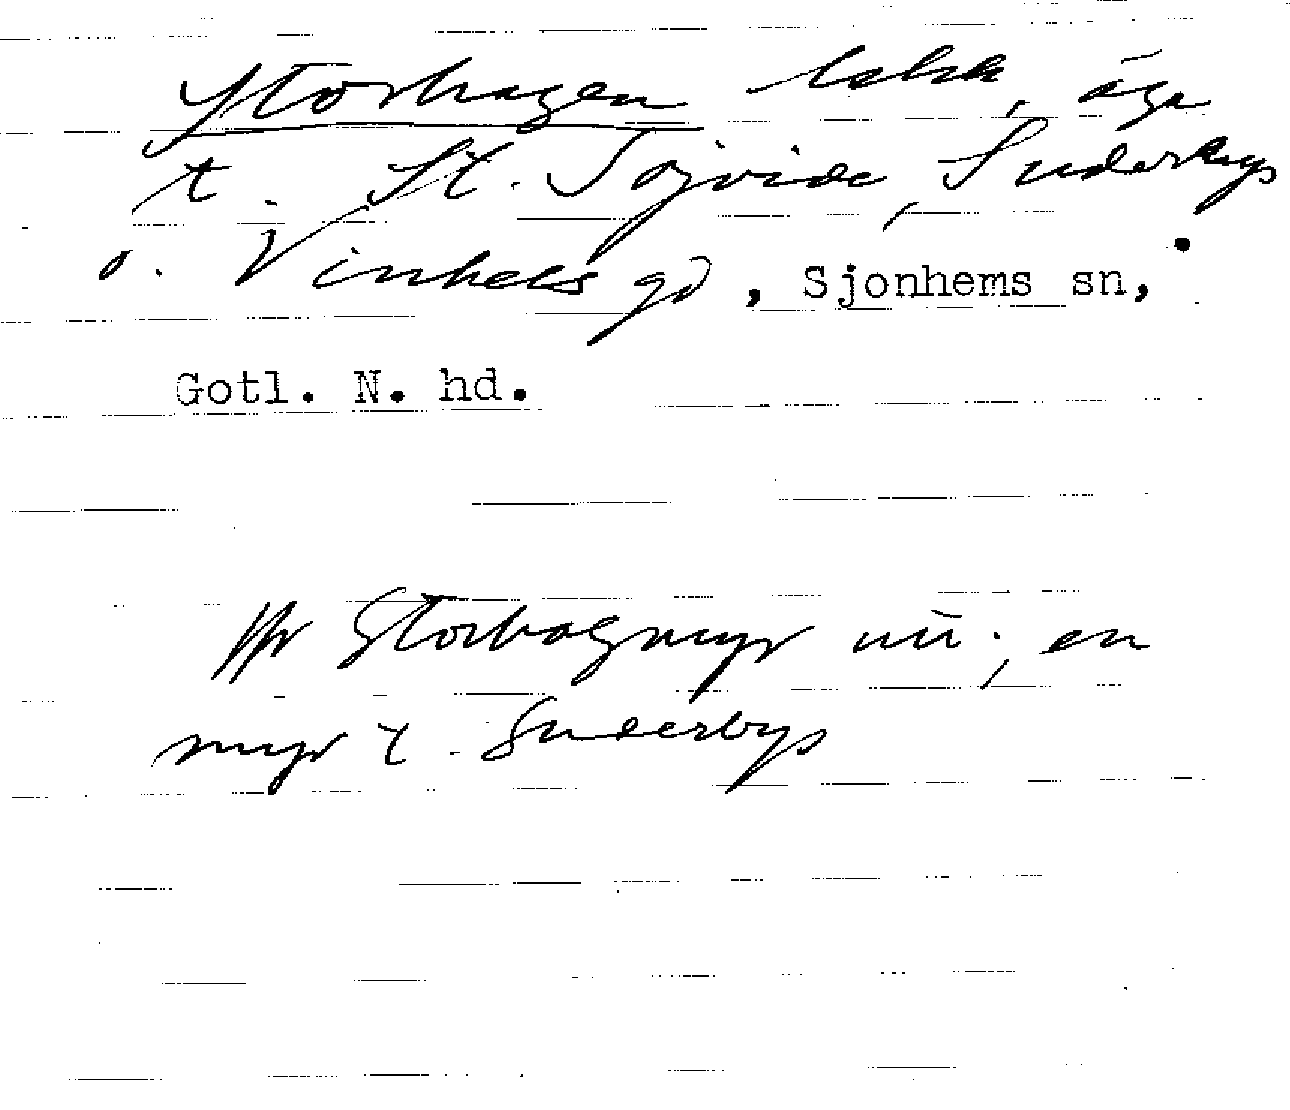 Storhagen bskr, äga
t. St. Sojvide, Suderbys
o. Vinhels gd, Sjonhems sn,
Gotl. N. hd.
Storhagmyr nu; en
myr t. Suderbys